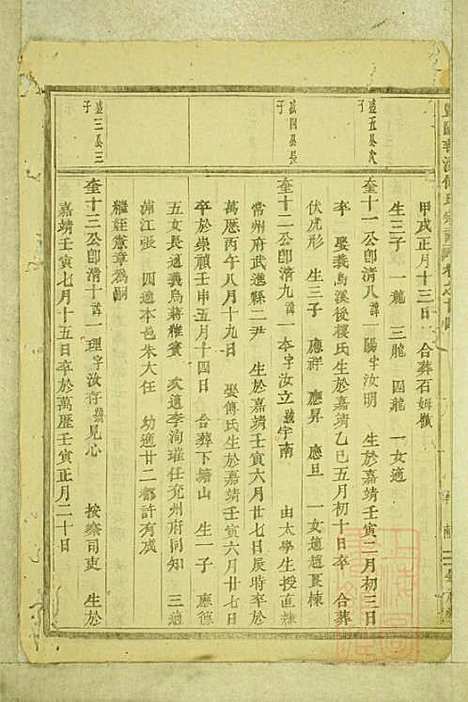 甲戌正月十三日 合葬石姆嶺
生三子 一龍 三龍 四龍 一女適
盛五長次子
奎十一公卽清八諱一陽字汝明 生於嘉靖壬寅二月初三日
卒 娶義烏溪後樓氏生於嘉靖乙巳五月初十日卒 合葬
伏虎形 生三子 應祥 應昇 應旦 一女適趙 棟
長子
奎十二公卽清九諱一本字汝立號宇南 由太學生授直隸
常州府武進縣二尹 生於嘉靖壬寅六月廿七日辰時卒於
萬歷丙午八月十九日 娶傅氏生於嘉靖壬寅六月廿七日
卒於崇禎壬申五月十四日 合葬下塘山 生一子 應德
五女長適義烏蔣雅賓 次適李洵瓘任兖州府同知 三適
浦江張 四適本邑朱大任 幼適廿二都許有成
繼姪憲章爲嗣
盛三長三子
奎十三公卽清十諱一理字汝存號見心 按察司吏 生於
嘉靖壬寅七月十五日卒於萬歷壬寅正月二十日